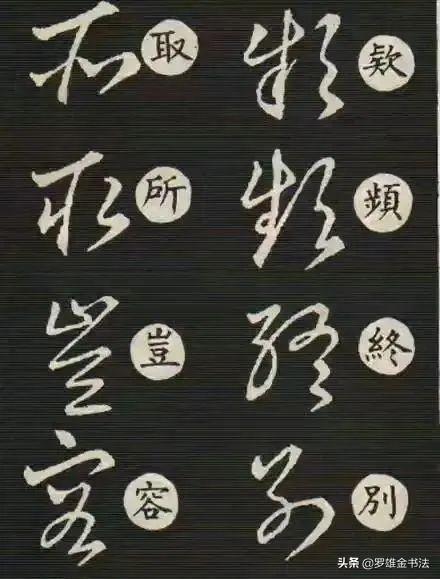 欵頻終別
取所豈容
头条 @罗雄金书法